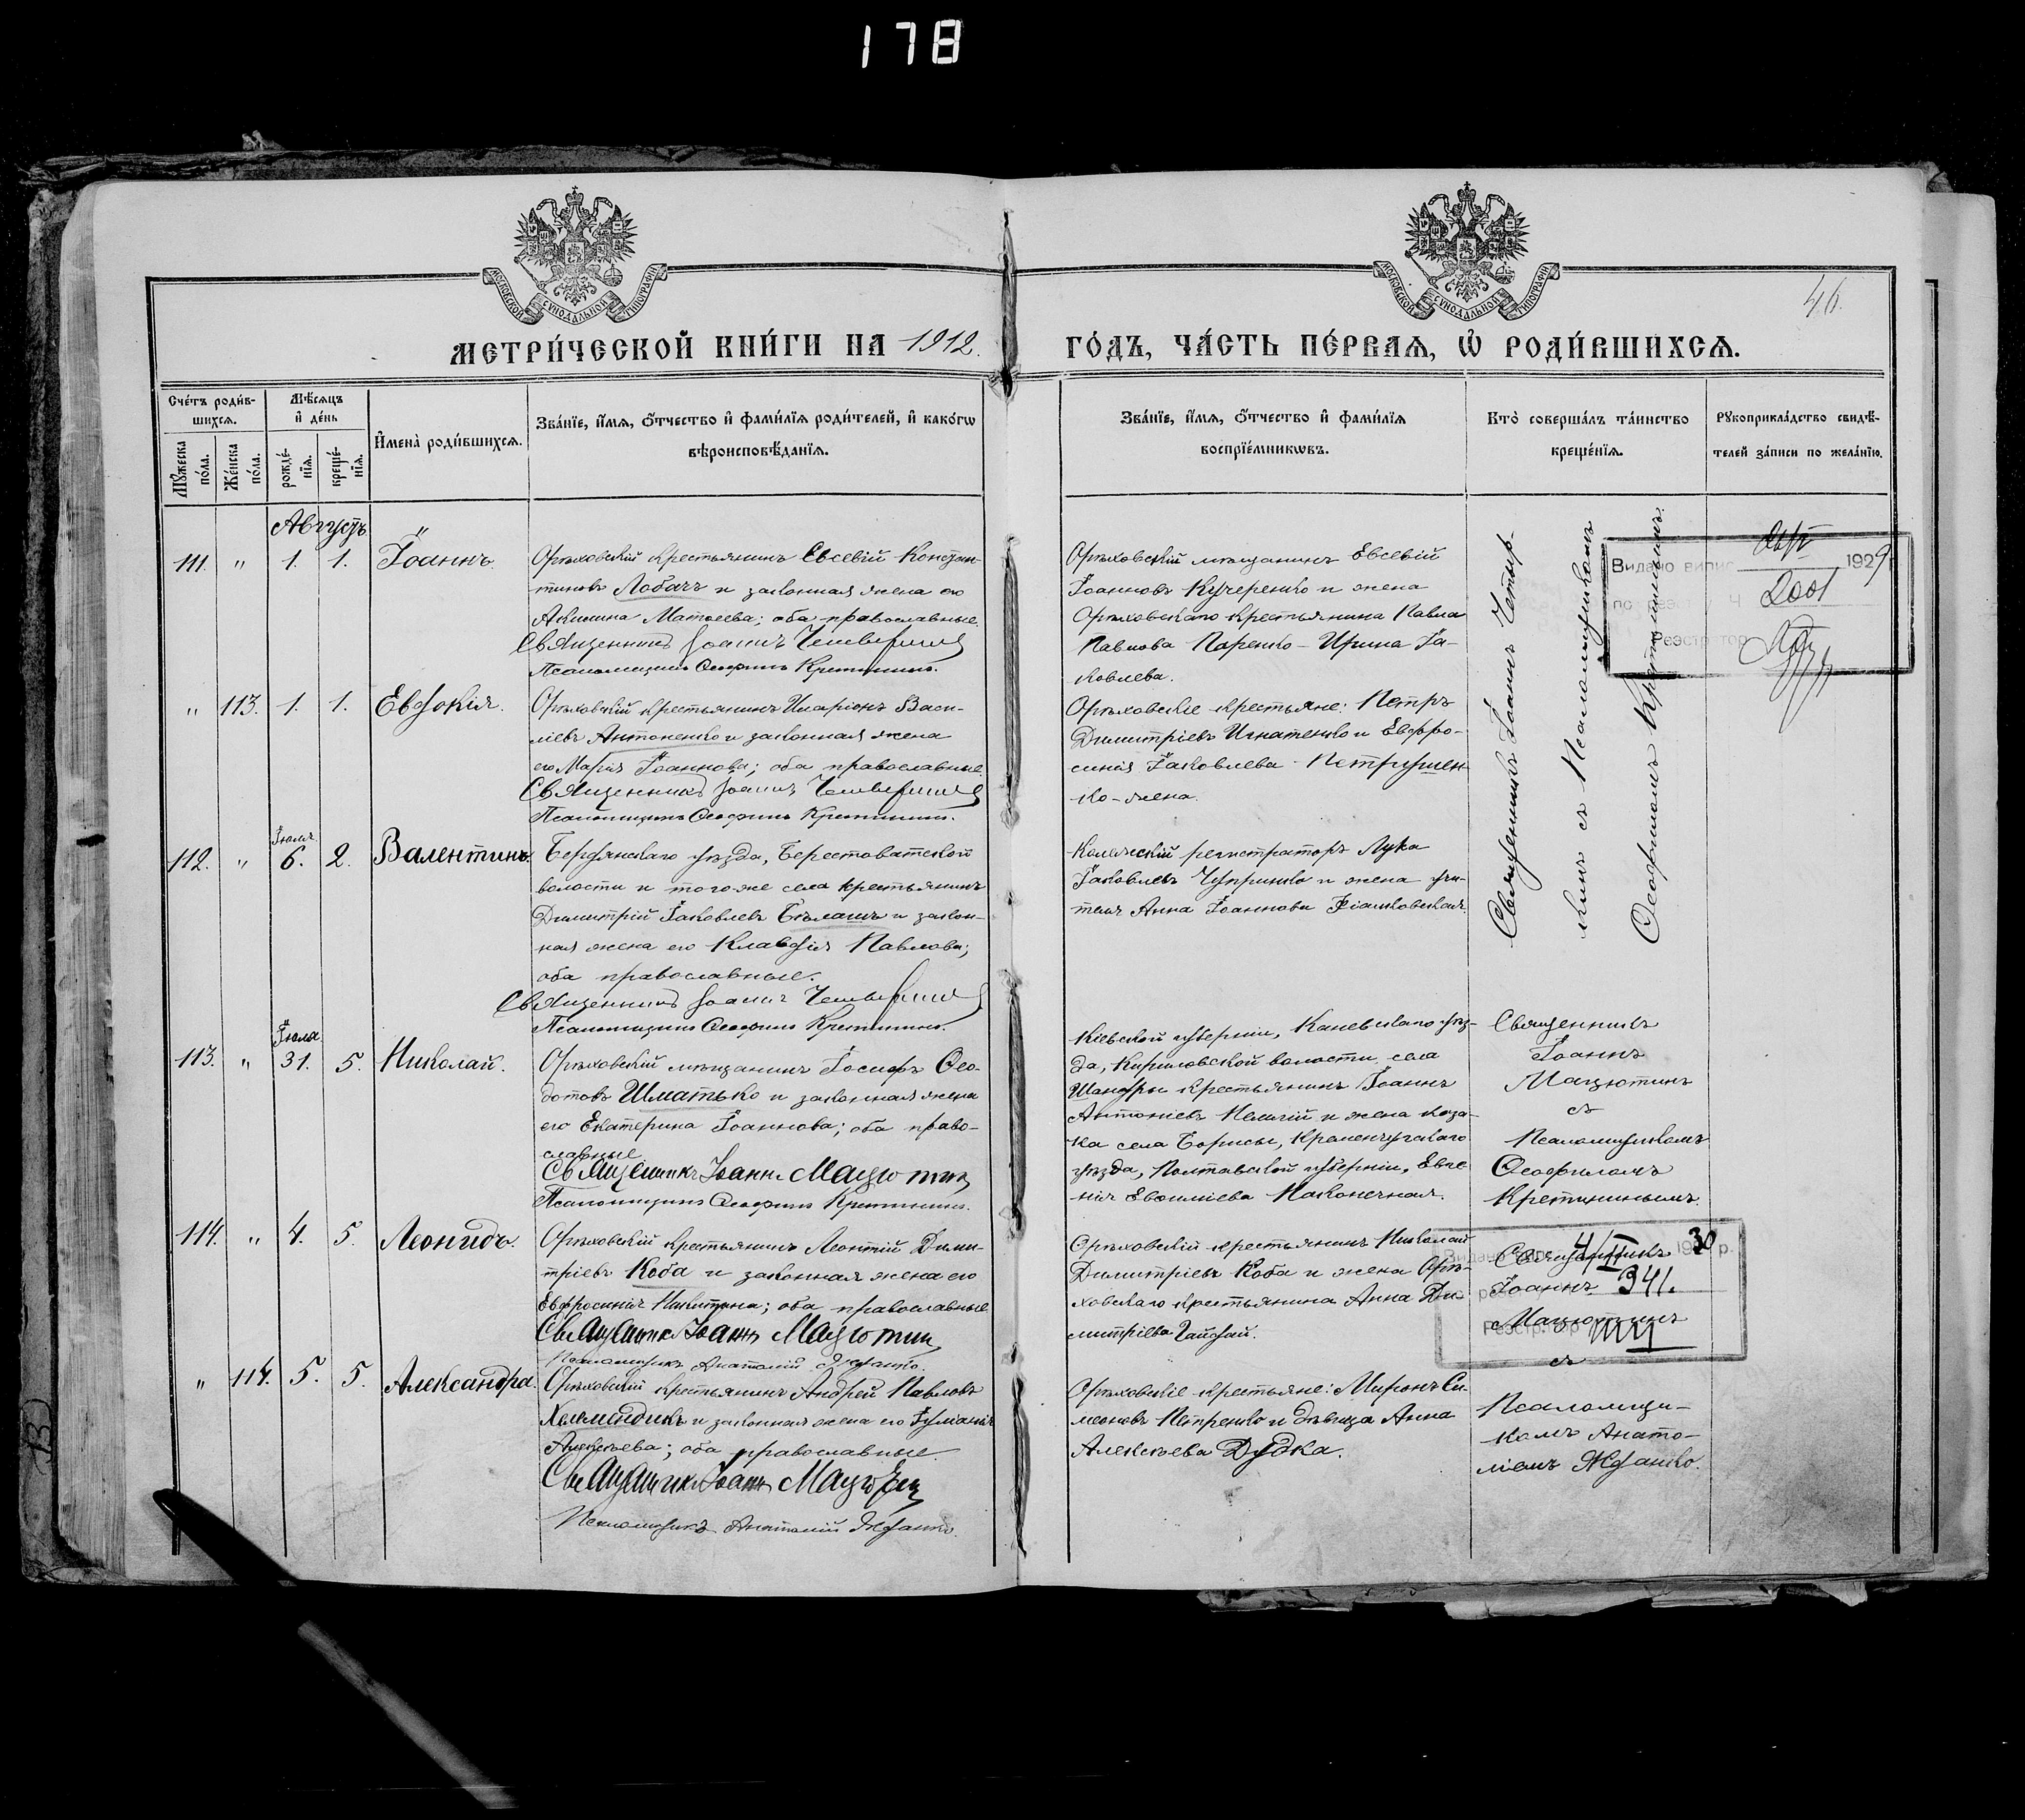 178
МОСКОВСКОЙ СУНОДАЛЬНОЙ ТИПОГРАФІИ
МОСКОВСКОЙ СУНОДАЛЬНОЙ ТИПОГРАФІИ
46.
МЕТРИ́ЧЕСКОЙ КНИ́ГИ НА 1912.
ГО́ДЪ, ЧА́СТЬ ПЕ́РВАѦ, Ѡ҆ РОДИ́ВШИХСѦ.
Сче́тъ роди́в-
шихсѧ.
Мѣ́сѧцъ
и҆ де́нь
Мꙋ́жеска по́ла.
Же́нска по́ла.
рожде́-
нїѧ.
креще́-
нїѧ.
И҆мена̀ роди́вшихсѧ.
Зва́нїе, и҆́мѧ, ѻ҆́тчество и҆ фами́лїѧ роди́телей, и҆ како́гѡ
вѣроисповѣ́данїѧ.
Зва́нїе, и҆́мѧ, ѻ҆́тчество и҆ фами́лїѧ
воспрїе́мникѡвъ.
Кто̀ соверша́лъ та́инство
креще́нїѧ.
Рꙋкоприкла́дство свидѣ́-
телей за́писи по жела́нїю.
Августъ
111. " 1. 1. Іоаннъ.
Орѣховскій крестьянинъ Евсевій Констан-
тиновъ Лобачъ и законная жена его
Акилина Матѳеева; оба православные.
Священникъ Іоаннъ
Псаломщикъ Ѳеофилъ Кретининъ.
Орѣховскій мѣщанинъ Евсевій
Іоанновъ Кучеренко и жена
Орѣховскаго крестьянина Павла
Павлова Паренко - Ирина Іа-
ковлева.
Священникъ Іоаннъ
съ Псаломщикомъ
Ѳеофиломъ Кретининымъ.
Видано випис 1929
по реєстр Ч 2001
Реєстратор
" 113. 1. 1. Евдокія.
Орѣховскій крестьянинъ Иларіонъ Васи-
ліевъ Антоненко и законная жена
его Марія Іоаннова; оба православные.
Священникъ Іоаннъ
Псаломщикъ Ѳеофилъ Кретининъ.
Орѣховскіе крестьяне: Петръ
Димитріевъ Игнатенко и Евфро-
синія Іаковлева Петрушен-
ко - жена.
112. " Іюля 6. 2. Валентинъ.
Бердянскаго уѣзда, Берестоватской
волости и того же села крестьянинъ
Димитрій Іаковлевъ Бѣлашъ и закон-
ная жена его Клавдія Павлова;
оба православные.
Священникъ Іоаннъ
Псаломщикъ Ѳеофилъ Кретининъ.
Коллежскій регистраторъ Лука
Іаковлевъ Чупринко и жена учи-
теля Анна Іоаннова Фіалковская.
113. " Іюля 31. 5. Николай.
Орѣховскій мѣщанинъ Іосифъ Ѳео-
дотовъ Шматько и законная жена
его Екатерина Іоаннова; оба право-
славные
Священникъ Іоаннъ Мацютинъ
Псаломщикъ Ѳеофилъ Кретининъ.
Кіевской губерніи, Каневскаго уѣз-
да, Кириловской волости, села
Шандры крестьянинъ Іоаннъ
Антоніевъ и жена коза-
ка села Борисы, Кременчугскаго
уѣзда, Полтавской губерніи, Евге-
нія Наконечная.
Священникъ
Іоаннъ
Мацютинъ
съ
Псаломщикомъ
Ѳеофиломъ
Кретининымъ.
114. " 4. 5. Леонидъ.
Орѣховскій крестьянинъ Леонтій Дими-
тріевъ Коба и законная жена его
Евфросинія Никитина; оба православные
Священникъ Іоаннъ Мацютинъ
Псаломщикъ Анатолій Жданко.
Орѣховскій крестьянинъ Николай
Димитріевъ Коба и жена Орѣ-
ховскаго крестьянина Анна Ди-
митріева Гайдай.
Священникъ
Іоаннъ
Мацютинъ
съ
4/II 1930 р.
341.
Реєстратор
" 114. 5. 5. Александра.
Орѣховскій крестьянинъ Андрей Павловъ
Келеменджикъ и законная жена его Іуліанія
Алексѣева; оба православные
Священникъ Іоаннъ Мацютинъ
Псаломщикъ Анатолій Жданко.
Орѣховскіе крестьяне: Миронъ Си-
меоновъ Петренко и дѣвица Анна
Алексѣева Дудка.
Псаломщи-
комъ Анато-
ліемъ Жданко.